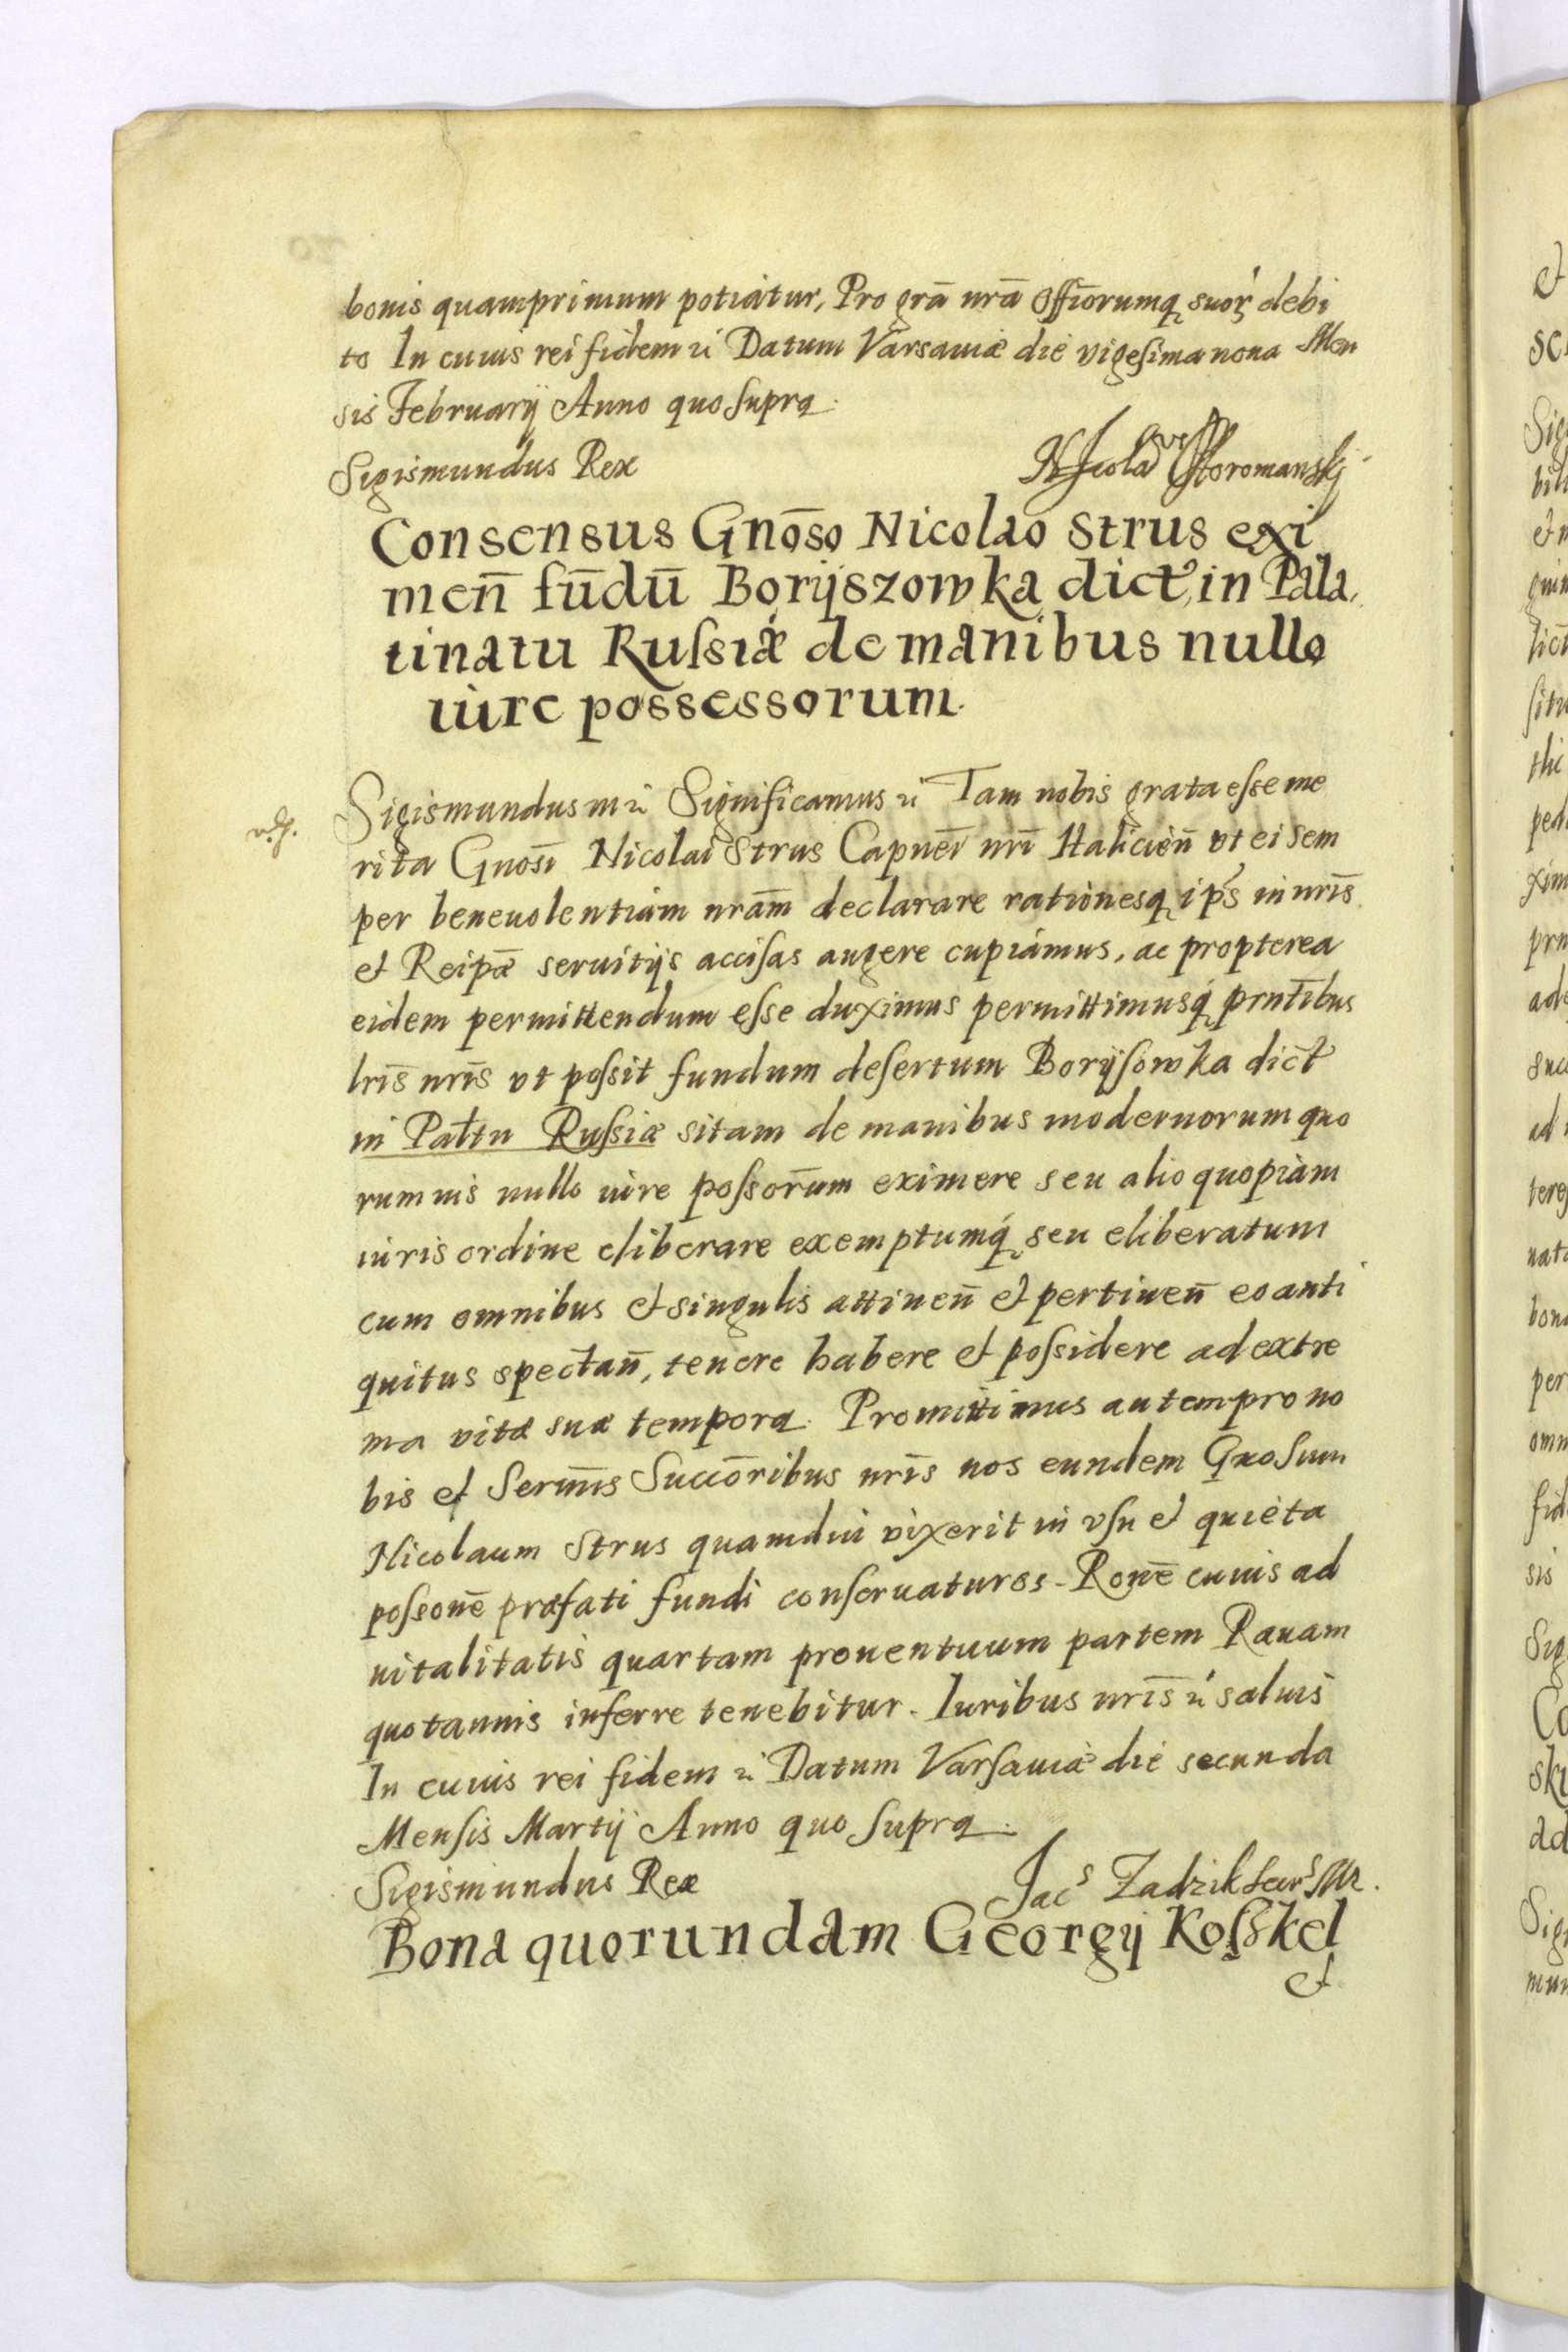 bonis quamprimum potiatur, Pro grā nrā Offiōrumq suor debi
to In cuius rei fidem Datum Varsauiæ die vigesima nona Men
sis Februarij Anno quo supra.
Sigismundus Rex
Consensus Gnōso Nicolao Strus exi
men̄ fūdū Borijszowka dict, in Pala,
tinatu Russiæ de manibus nullo
iure possessorum.
Sigismundus Significamus Tam nobis grata esse me
rita Gnosi Nicolai Strus Capnei nri Halicien̄ vt ei sem
per beneuolentiam nram̄ declarare rationesq ips in nris̄
et Reipæ seruitijs accisas augere cupiamus, ac propterea
eidem permittendum esse duximus permittimusq prntībus
lris̄ nris̄ vt possit fundum desertum Borijsowka dict
in Pałtu Russiæ sitam de manibus modernorum quo
rum uis nullo iure possorūm eximere seu alio quopiam
iuris ordine eliberare exemptumq seu eliberatum
cum omnibus et singulis attinen̄ et pertinen̄ eo anti
quitus spectan̄, tenere habere et possidere ad extre
ma vitæ suæ tempora. Promittimus autem pro no
bis et Sermīs Succōribus nris̄ nos eundem Gnosum
Nicolaum Strus quamdiu vixerit in vsu et quieta
possonē præfati fundi conseruaturos. Ronē cuius ad
uitalitatis quartam prouentuum partem Rauam
quotannis inferre tenebitur. Iuribus nris̄ saluis
In cuius rei fidem Datum Varsauiæ die secunda
Mensis Martij Anno quo supra.
Sigismundus Rex Jacs Zadzik
Bona quorundam Georgij Koszkel
et